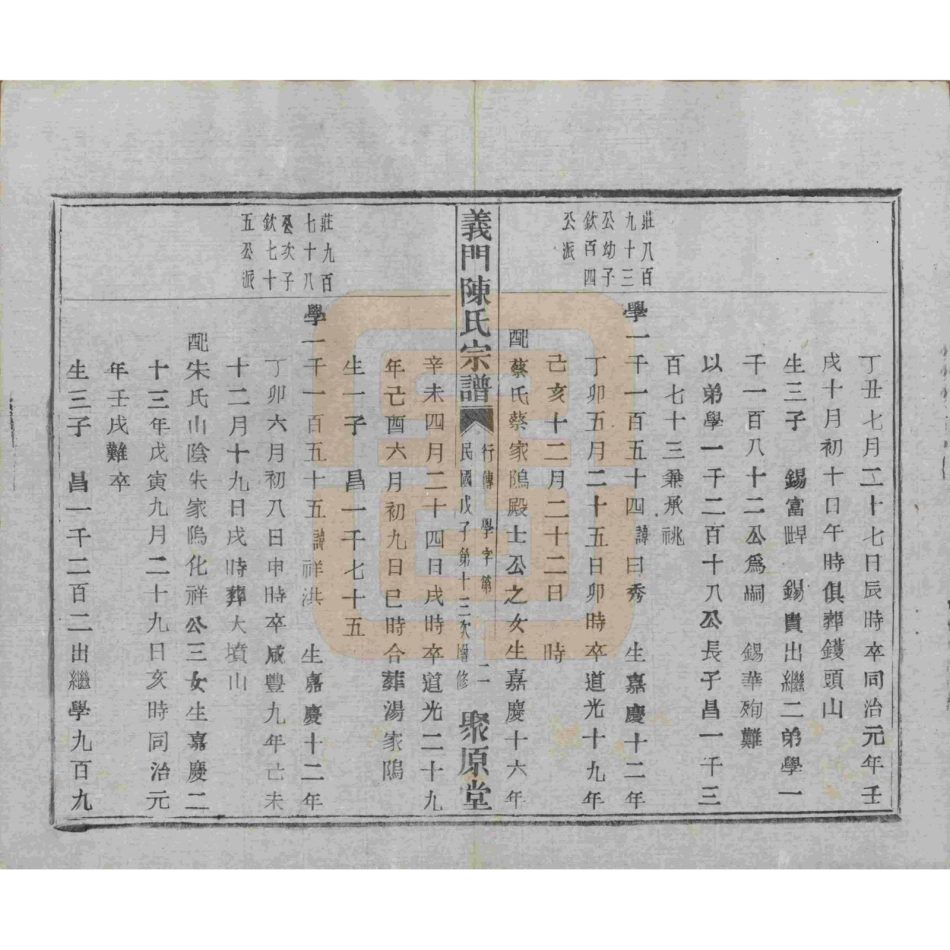 丁丑七月二十七日辰時卒同治元年壬
戌十月初十日午時俱葬鑊頭山
生三子　錫富　錫貴出繼二弟學一
千一百八十二公爲嗣　錫華殉難
以弟學一千二百十八公長子昌一千三
百七十三兼承祧
莊八百
九十三
公幼子
欽百四
公派
學一千一百五十四諱曰秀　生嘉慶十二年
丁卯五月二十五日卯時卒道光十九年
己亥十二月二十二日　時
配蔡氏蔡家隖殿士公之女生嘉慶十六年
義門陳氏宗譜
行傳　學字第　二
民國戊子第十三次增修
聚原堂
辛未四月二十四日戌時卒道光二十九
年己酉六月初九日巳時合葬湯家隖
生一子　昌一千七十五
莊九百
七十八
公次子
欽七十
五公派
學一千一百五十五諱祥洪　生嘉慶十二年
丁卯六月初八日申時卒咸豐九年己未
十二月十九日戌時葬大墳山
配宋氏山陰朱家隖化祥公三女生嘉慶二
十三年戊寅九月二十九日亥時同治元
年壬戌難卒
生三子　昌一千二百二出繼學九百九